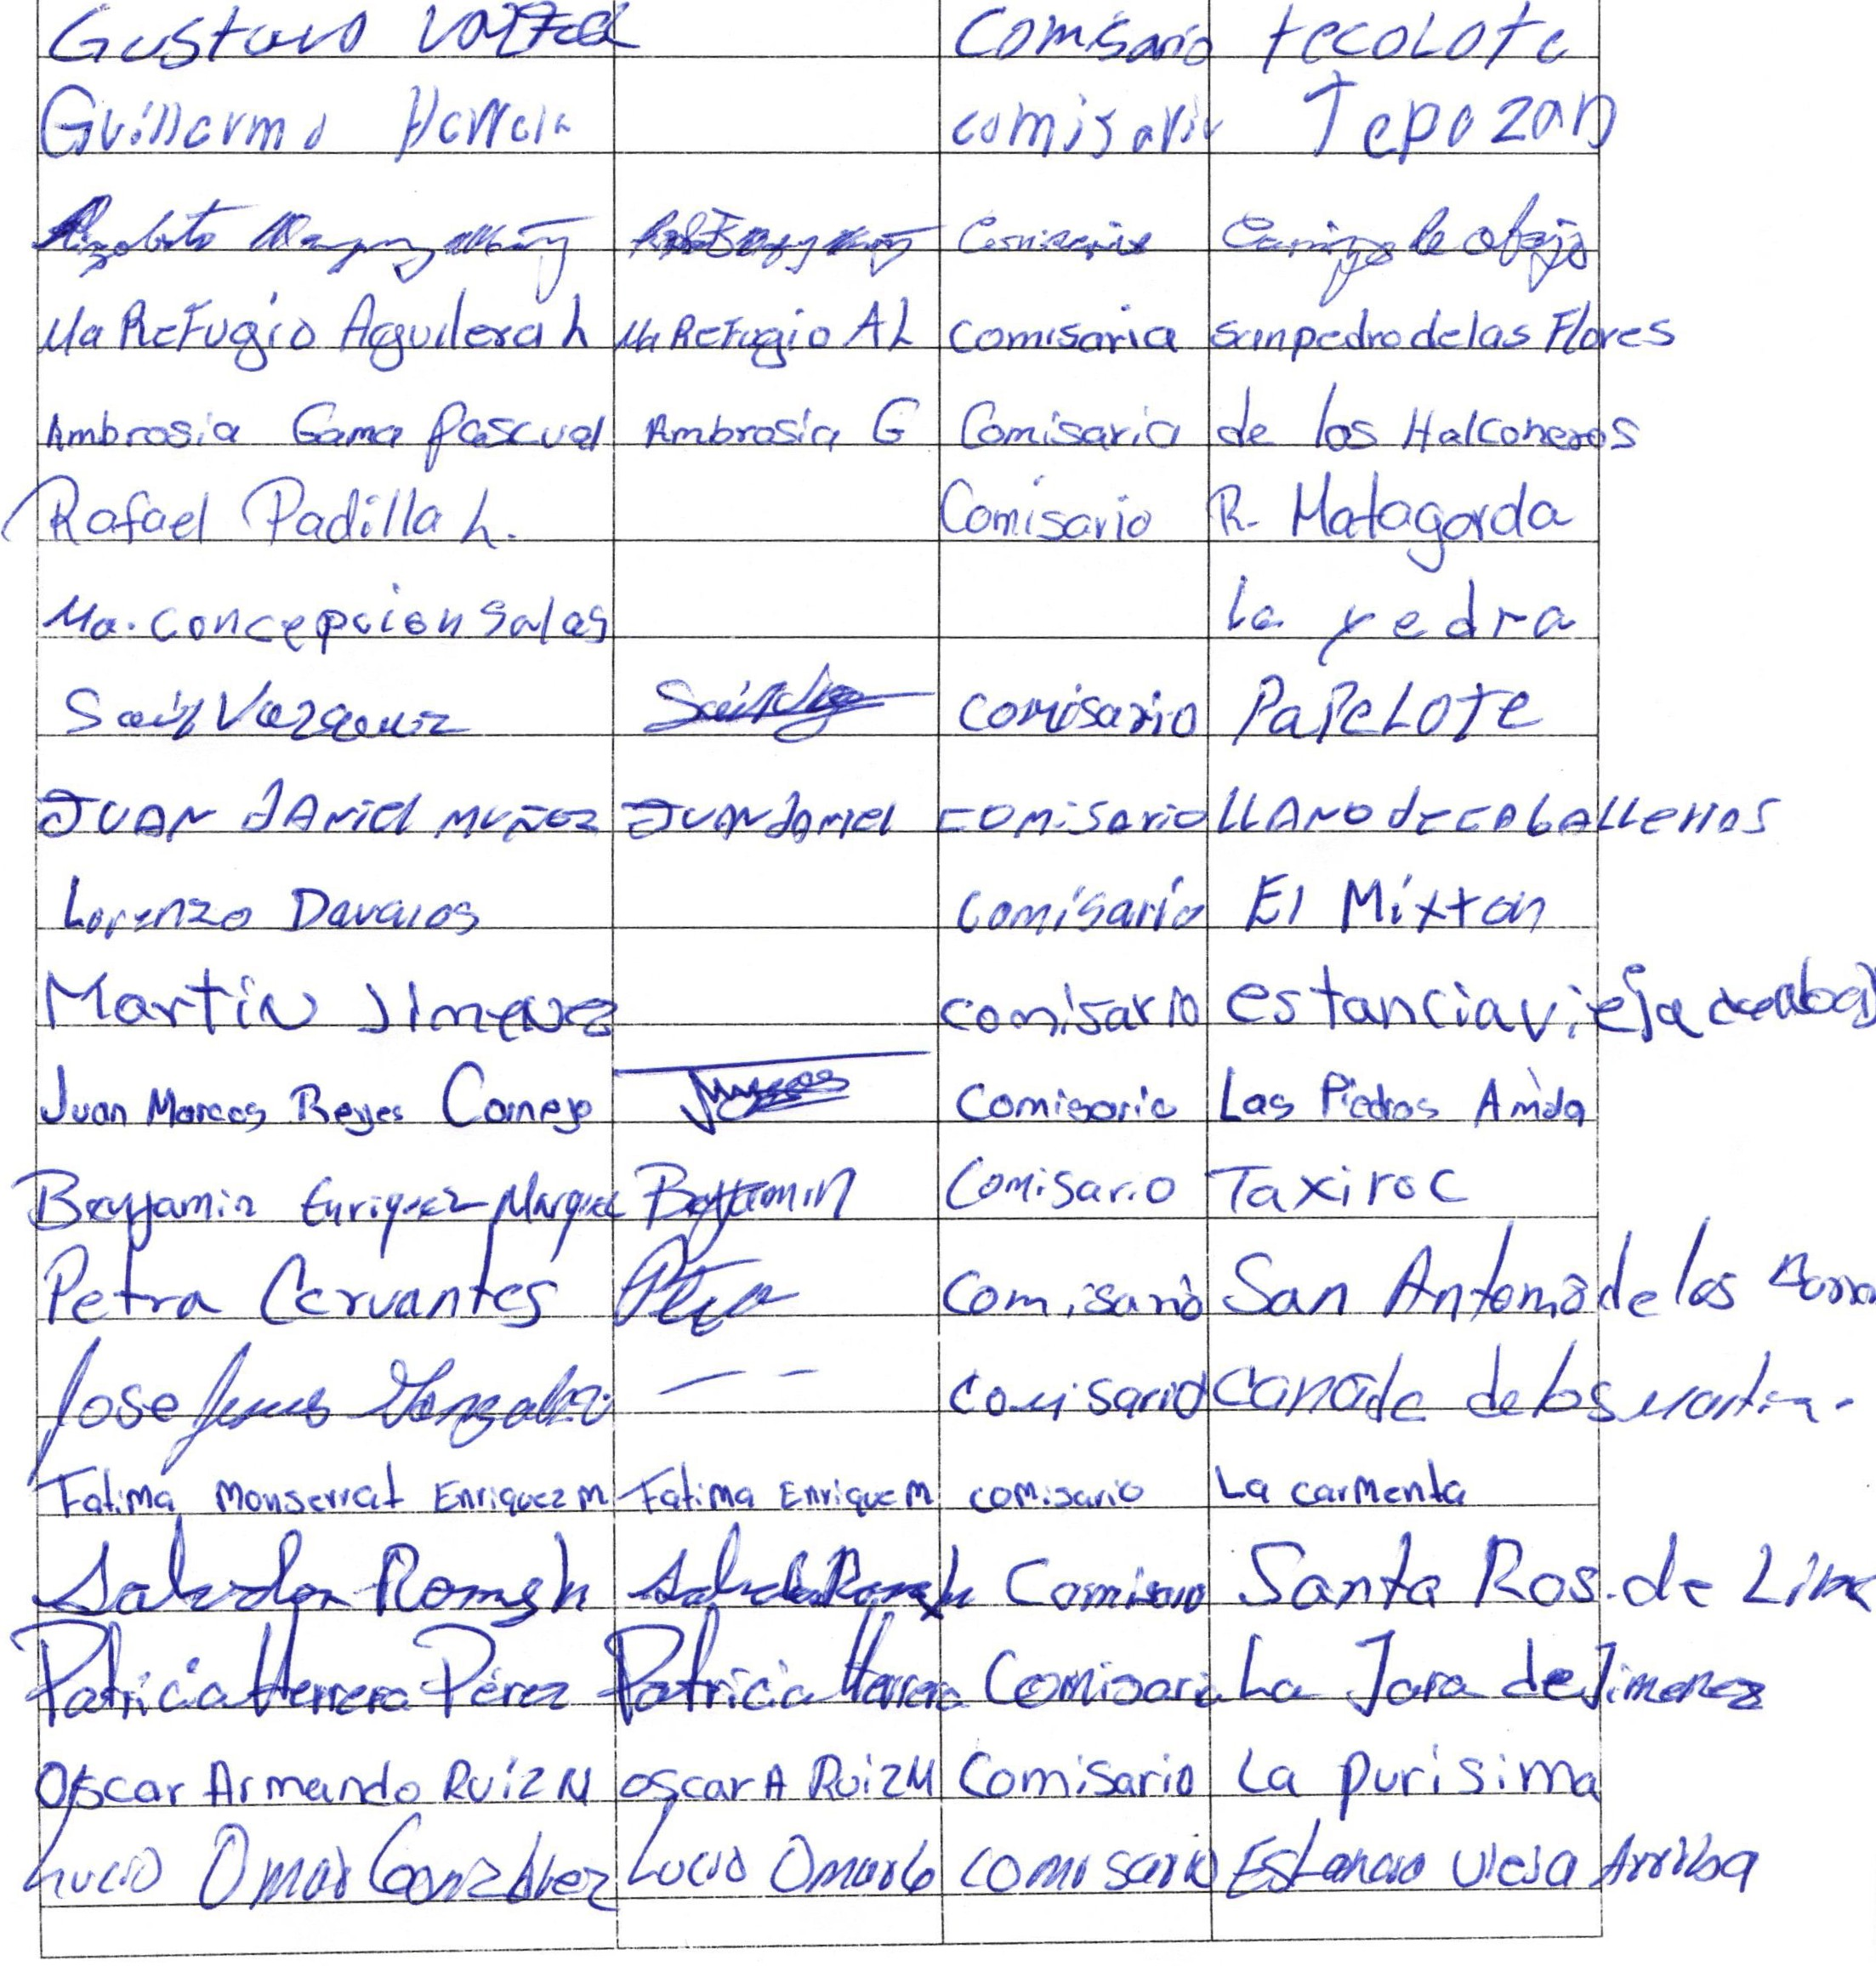 Gustavo Comisario tecoLote
Guillermo Herrera comisario Tepozan
Comisario de abajo
Ma Refugio Aguilera L Ma Refugio A L comisaria sanpedrodelas Flores
Ambrosia Gama Pascual Ambrosia G Comisaria de los Halconeros
Rafael Padilla L. Comisario R. Matagorda
Ma. concepcion salas La yedra
Saúl Vazquez comisario PaPeLOTe
JUAN dANiel MUÑOZ JUAN daniel comisario LLANO de caballeros
Lorenzo Davalos comisario El Mixton
Martin Jimenez comisario estancia vieja
Juan Marcos Reyes Cornejo Comisario Las Piedras
Benjamin Enriquez Marquez Benjamin Comisario Taxiroc
Petra Cervantes Comisario San Antonio de los
Jose Jesus Gonzalez comisario cañada de los
Fatima Monserrat Enriquez M Fatima Enrique M comisario La carmenta
Salvador Comisario Santa Ros. de
Patricia Herrera Pérez Patricia Herrera Comisaria La Jara de Jimenez
Oscar Armando Ruiz M oscar A Ruiz M Comisario La purisima
Lucio Omar Gonzalez Lucio Omar G comisario Estancia vieja Arriba